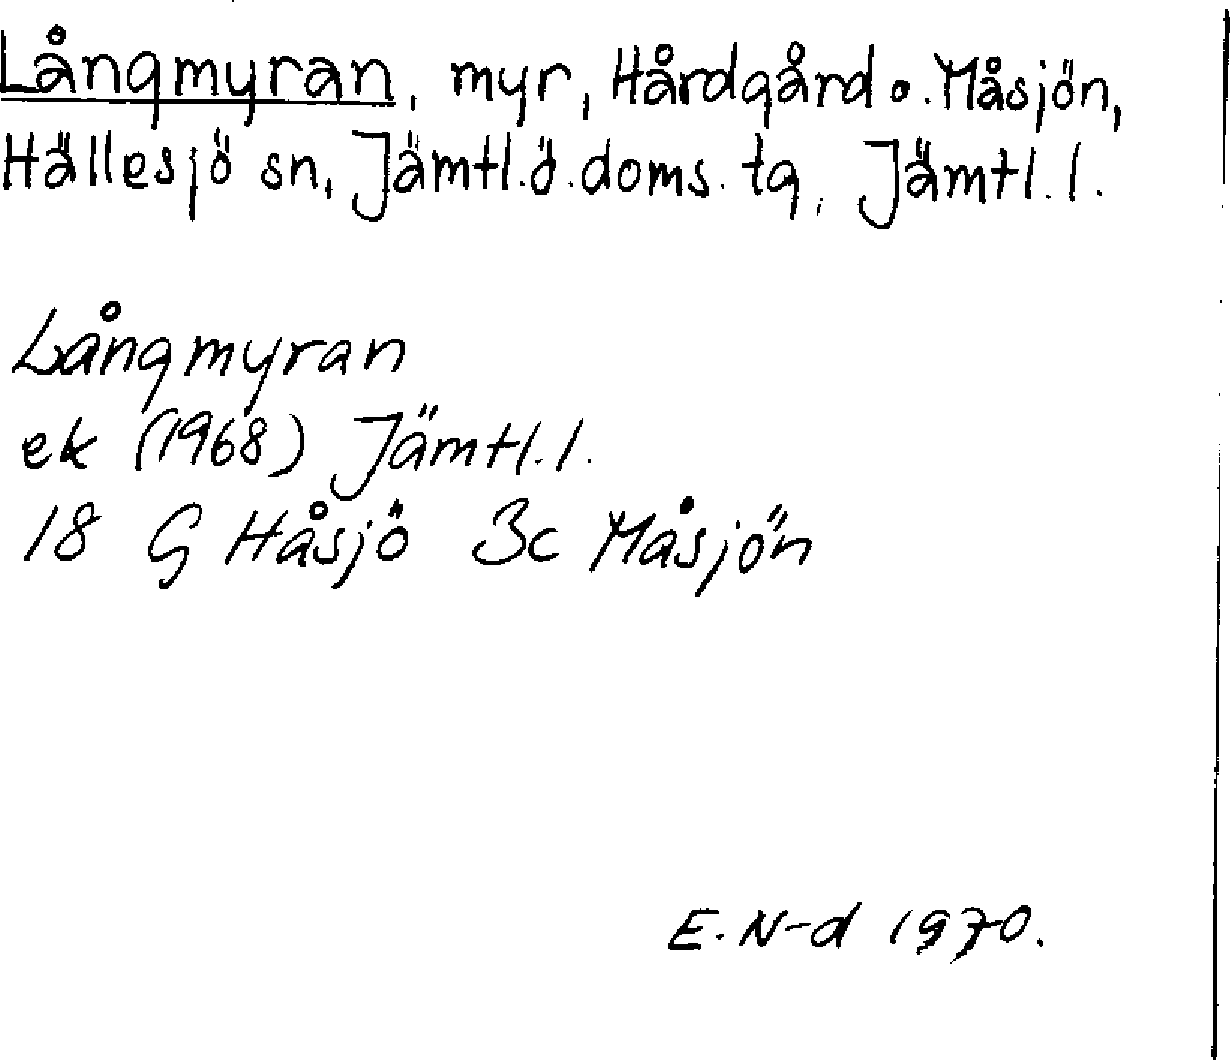 Långmyran, myr, Hårdgård o. Måsjön,
Hällesjö sn, Jämtl.ö.doms.tg, Jämtl.l.
Långmyran
ek (1968) Jämtl.l.
18 G Håsjö 3c Måsjön
E.N-d 1970.